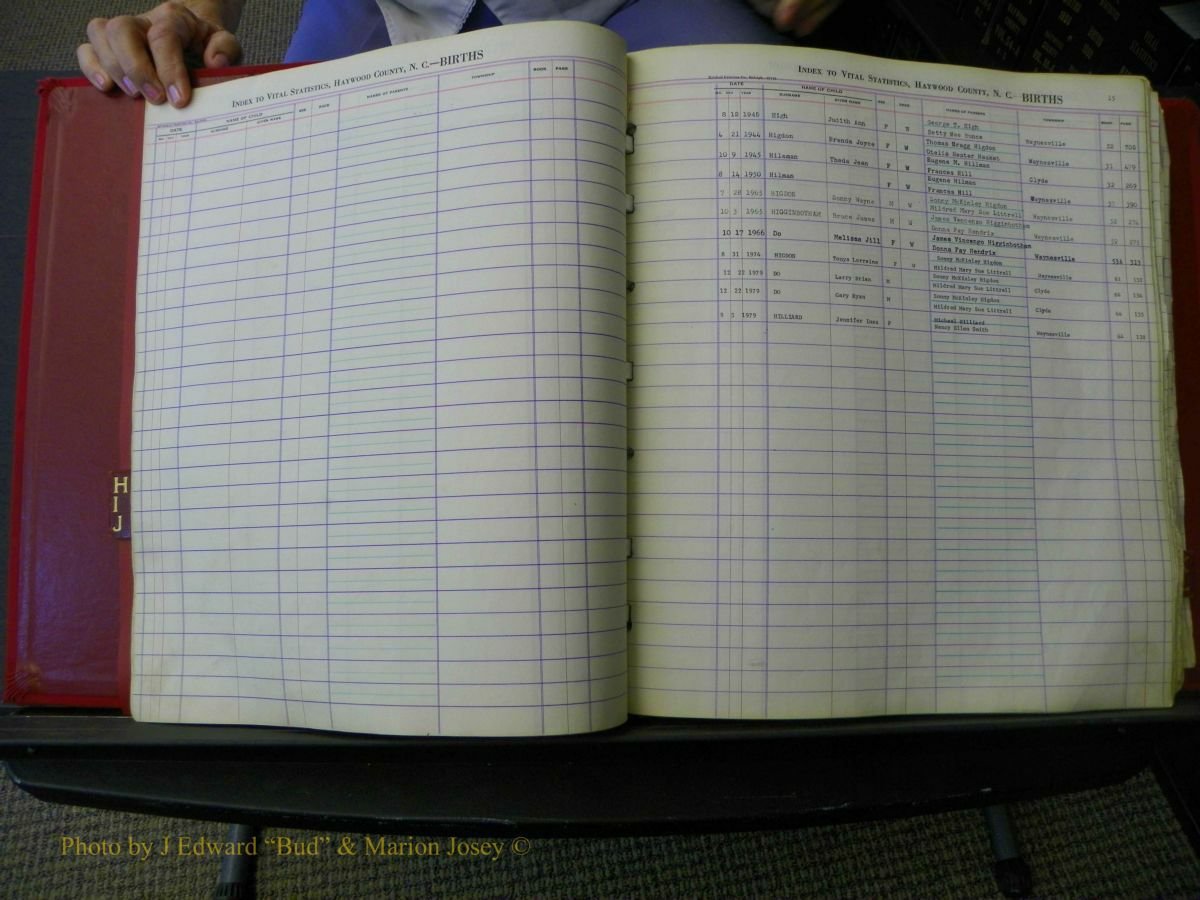 INDEX TO VITAL STATISTICS, HAYWOOD COUNTY, N. C.—BIRTHS
DATE NAME OF CHILD SEX RACE NAMES OF PARENTS TOWNSHIP BOOK PAGE
SURNAME GIVEN NAME
H
I
J
INDEX TO VITAL STATISTICS, HAYWOOD COUNTY, N. C.—BIRTHS
DATE NAME OF CHILD SEX RACE NAMES OF PARENTS TOWNSHIP BOOK PAGE
MO. DAY YEAR SURNAME GIVEN NAME
8 High Judith Ann F George T. High Waynesville
21 1944 Higdon Brenda Joyce F W Thomas Higdon Waynesville 31 479
10 9 1945 Theda Jean F W Eugene M. Hillman Clyde 32 269
Frances Hill
8 14 1950 Hilman F W Eugene Hilman Waynesville 37 390
Frances Hill
7 28 1965 HIGDON Sonny Wayne M W Sonny McKinley Higdon Waynesville 52
Mildred Mary Sue Littrell
10 3 1965 HIGGINBOTHAM Bruce James M W James Vencenzo Higginbotham Waynesville 52
Donna Fay Hendrix
10 17 1966 Do Melissa Jill F W James Vincengo Higginbotham Waynesville 53A 313
Donna Fay Hendrix
8 31 1974 HIGDON Tonya Lorraine F W Sonny McKinley Higdon Waynesville 61
Mildred Mary Sue Littrell
12 22 1979 DO Larry Brian M Sonny McKinley Higdon Clyde 66 134
Mildred Mary Sue Littrell
12 22 1979 DO Gary Ryan M Sonny McKinley Higdon Clyde 66 135
Mildred Mary Sue Littrell
9 5 1979 HILLIARD Jennifer F Michael Hilliard Waynesville 66 138
Nancy Ellen Smith
Photo by J Edward “Bud” & Marion Josey ©